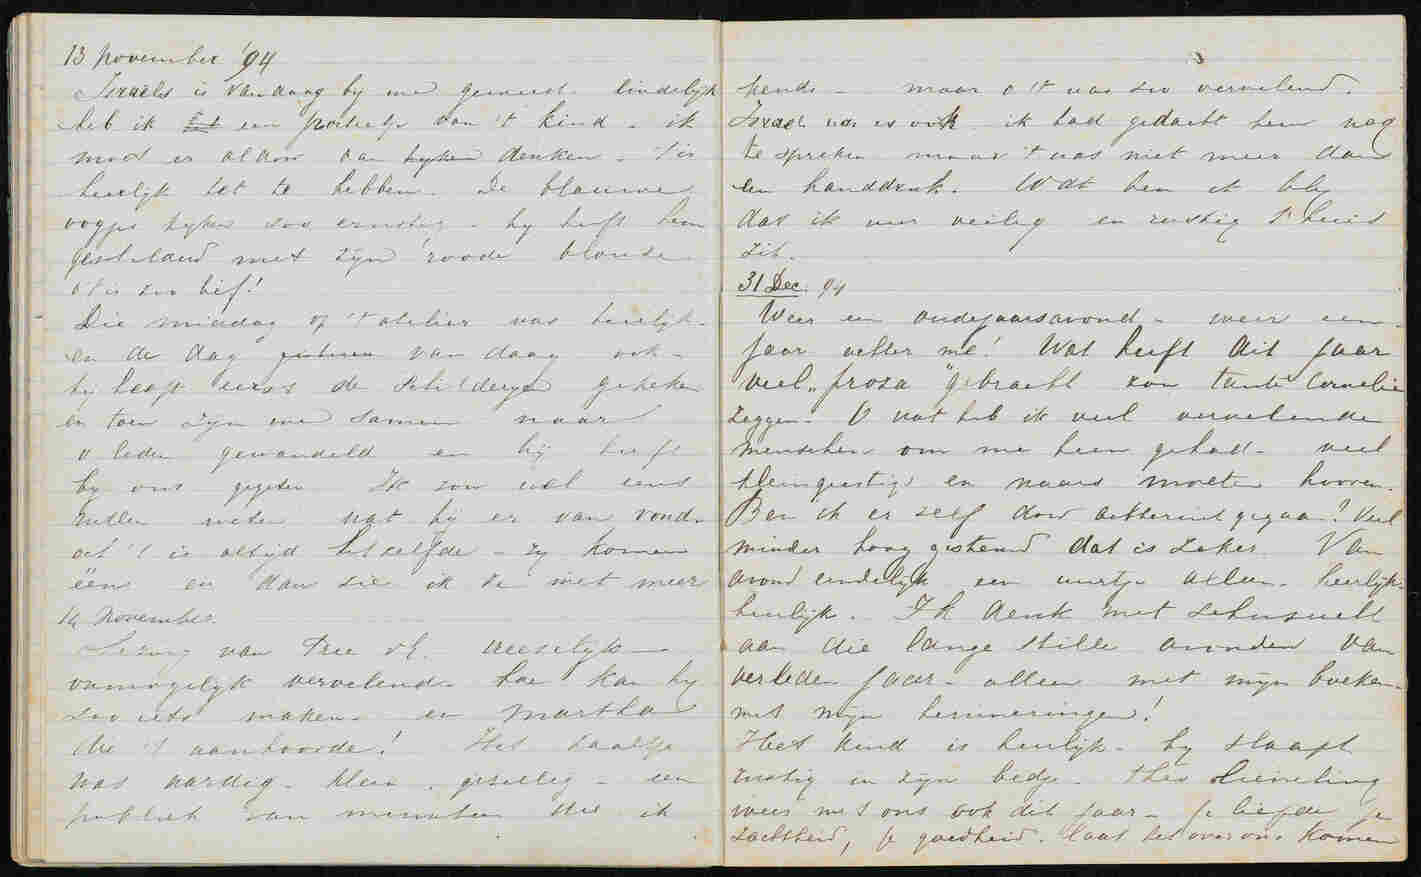 13 november '94
Israëls is vandaag by me geweest. Eindelijk
heb ik het een portretje van 't kind - ik
moet er aldoor aan kyken denken - 't is
heerlijk het te hebben. De blauwe
oogjes kyken zoo ernstig - hy heeft hem
geschilderd met zijn roode blouse
o 't is zoo lief!
Die middag op 't atelier was heerlijk -
en de dag gisteren van daag ook -
hy heeft eerst de schilderyen gekeken
en toen zyn we samen naar
gewandeld en hij heeft
by ons gegeten Ik zou wel eens
willen weten wat hij er van vond -
ach 't is altijd hetzelfde - zy komen
ééns en dan zie ik ze niet meer
14 november.
Lezing van Free v E. vreeselijk -
onmogelijk vervelend - hoe kan hy
zoo iets maken - en Martha
die 't aanhoorde! Het zaaltje
was aardig - klein, gezellig - een
publiek van menschen die ik
kende - maar o 't was zoo vervelend.
Israels was er ook ik had gedacht hem nog
te spreken maar 't was niet meer dan
een handdruk. Wat ben ik bly
dat ik weer veilig en rustig t'huis
zit.
31 Dec. 94
Weer een oudejaarsavond - weer een
jaar achter me! Wat heeft dit jaar
veel "proza" gebracht zou tante Cornelie
zeggen - O wat heb ik veel vervelende
menschen om me heen gehad - veel
kleingeestigs en naars moeten hooren.
Ben ik er zelf door achteruit gegaan? Veel
minder hoog gestemd dat is zeker. Van
avond eindelijk een uurtje alleen. heerlijk -
heerlijk. Ik denk met sehnsucht
aan die lange stille avonden van
verleden jaar - alleen met mijn boeken -
met mijn herinneringen!
Het kind is heerlijk - hy slaapt
rustig in zijn bedje. Theo lieveling
wees met ons ook dit jaar - je liefde je
zachtheid, je goedheid. laat het over ons komen